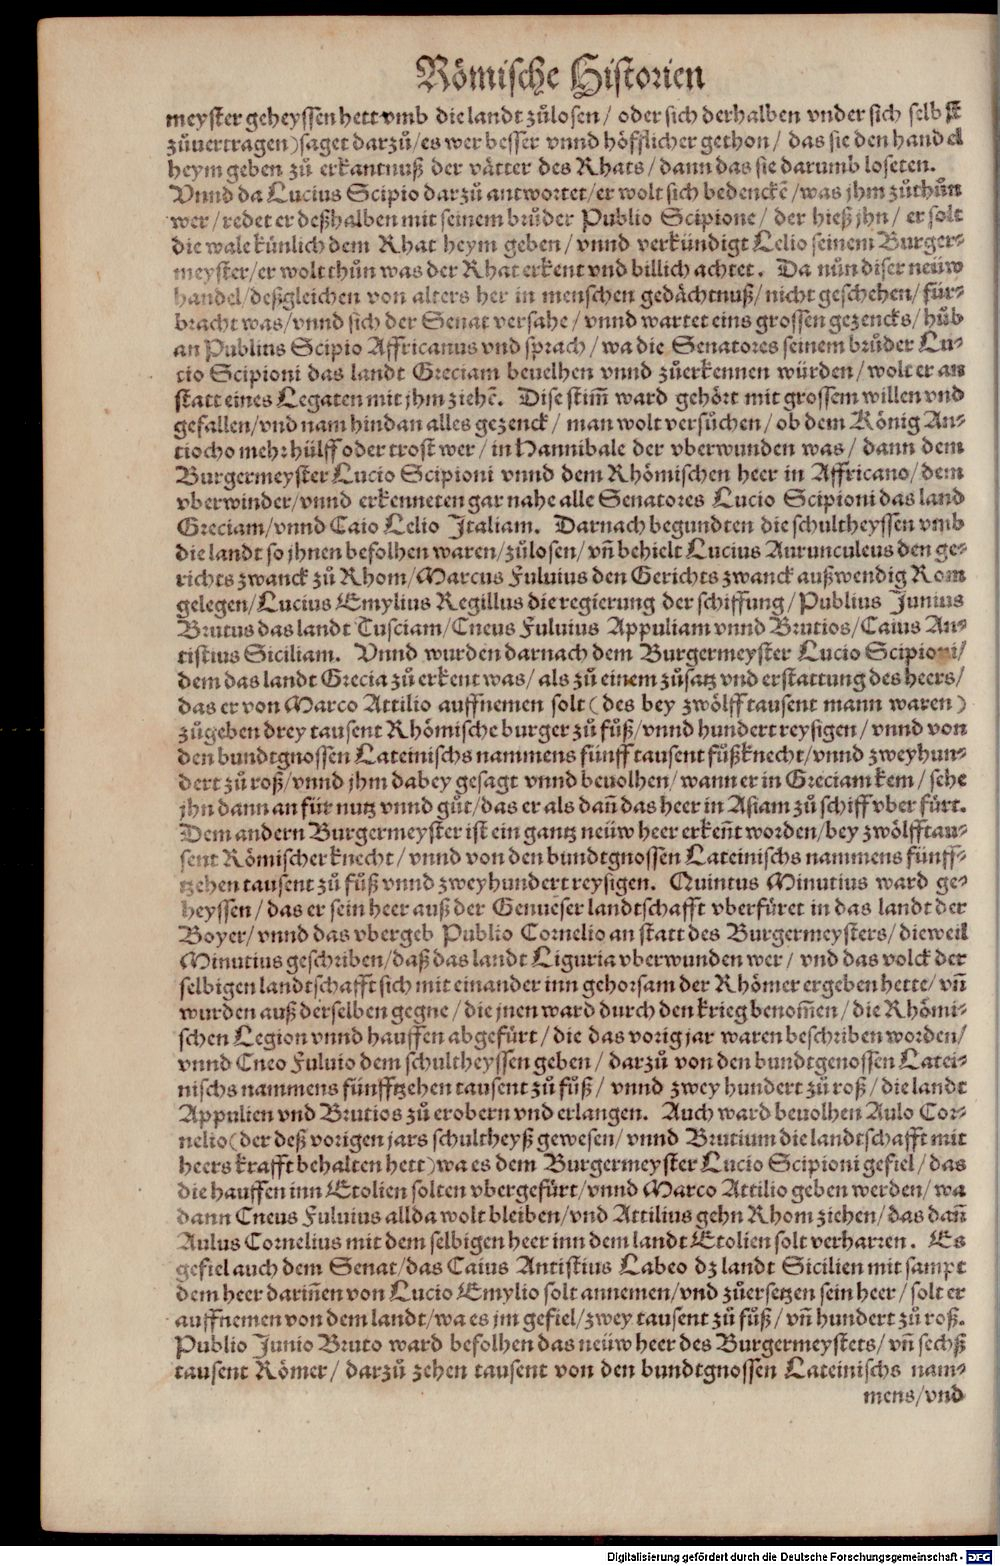 Römische Historien
meyster geheyssen hett vmb die landt zůlosen / oder sich derhalben vnder sich selbst
zůuertragen) saget darzů / es wer besser vnnd höfflicher gethon / das sie den handel
heym geben zů erkantnuß der vätter des Rhats / dann das sie darumb loseten.
Vnnd da Lucius Scipio darzů antwortet / er wolt sich bedenckē / was jhm zůthůn
wer / redet er deßhalben mit seinem brůder Publio Scipione / der hieß jhn / er solt
die wale künlich dem Rhat heym geben / vnnd verkündigt Lelio seinem Burger⸗
meyster / er wolt thůn was der Rhat erkent vnd billich achtet. Da nůn diser neüw
handel / deßgleichen von alters her in menschen gedächtnuß / nicht geschehen / für⸗
bracht was / vnnd sich der Senat versahe / vnnd wartet eins grossen gezencks / hůb
an Publius Scipio Affricanus vnd sprach / wa die Senatores seinem brůder Lu⸗
cio Scipioni das landt Greciam beuelhen vnnd zůerkennen würden / wolt er an
statt eines Legaten mit jhm ziehē. Dise stim̄ ward gehört mit grossem willen vnd
gefallen / vnd nam hindan alles gezenck / man wolt versůchen / ob dem König An⸗
tiocho mehr hülff oder trost wer / in Hannibale der vberwunden was / dann dem
Burgermeyster Lucio Scipioni vnnd dem Rhömischen heer in Affricano / dem
vberwinder / vnnd erkenneten gar nahe alle Senatores Lucio Scipioni das land
Greciam / vnnd Caio Lelio Italiam. Darnach begundten die schultheyssen vmb
die landt so jhnen befolhen waren / zůlosen / vn̄ behielt Lucius Aurunculeus den ge⸗
richts zwanck zů Rhom / Marcus Fuluius den Gerichts zwanck außwendig Rom
gelegen / Lucius Emylius Regillus die regierung der schiffung / Publius Junius
Brutus das landt Tusciam / Cneus Fuluius Appuliam vnnd Brutios / Caius An⸗
tistius Siciliam. Vnnd wurden darnach dem Burgermeyster Lucio Scipioni /
dem das landt Grecia zů erkent was / als zů einem zůsatz vnd erstattung des heers /
das er von Marco Attilio auffnemen solt (des bey zwölff tausent mann waren)
zůgeben drey tausent Rhömische burger zů fůß / vnnd hundert reysigen / vnnd von
den bundtgnossen Lateinischs nammens fünff tausent fůßknecht / vnnd zweyhun⸗
dert zů roß / vnnd jhm dabey gesagt vnnd beuolhen / wann er in Greciam kem / sehe
jhn dann an für nutz vnnd gůt / das er als dañ das heer in Asiam zů schiff vber fürt.
Dem andern Burgermeyster ist ein gantz neüw heer erkeñt worden / bey zwölff tau⸗
sent Römischer knecht / vnnd von den bundtgnossen Lateinischs nammens fünff⸗
tzehen tausent zů fůß vnnd zweyhundert reysigen. Quintus Minutius ward ge⸗
heyssen / das er sein heer auß der Genueser landtschafft vberfüret in das landt der
Boyer / vnnd das vbergeb Publio Cornelio an statt des Burgermeysters / dieweil
Minutius geschriben / daß das landt Liguria vberwunden wer / vnd das volck der
selbigen landtschafft sich mit einander inn gehorsam der Rhömer ergeben hette / vn̄
wurden auß derselben gegne / die jnen ward durch den krieg benom̄en / die Rhömi⸗
schen Legion vnnd hauffen abgefürt / die das vorig jar waren beschriben worden /
vnnd Cneo Fuluio dem schultheyssen geben / darzů von den bundtgenossen Latei⸗
nischs nammens fünfftzehen tausent zů fůß / vnnd zwey hundert zů roß / die landt
Appulien vnd Brutios zů erobern vnd erlangen. Auch ward beuolhen Aulo Cor⸗
nelio (der deß vorigen jars schultheyß gewesen / vnnd Brutium die landtschafft mit
heers krafft behalten hett) wa es dem Burgermeyster Lucio Scipioni gefiel / das
die hauffen inn Etolien solten vbergefürt / vnnd Marco Attilio geben werden / wa
dann Cneus Fuluius allda wolt bleiben / vnd Attilius gehn Rhom ziehen / das dañ
Aulus Cornelius mit dem selbigen heer inn dem landt Etolien solt verharren. Es
gefiel auch dem Senat / das Caius Antistius Labeo dz landt Sicilien mit sampt
dem heer dariñen von Lucio Emylio solt annemen / vnd zůersetzen sein heer / solt er
auffnemen von dem landt / wa es jm gefiel / zwey tausent zů fůß / vn̄ hundert zů roß.
Publio Junio Bruto ward befolhen das neüw heer des Burgermeystets / vn̄ sechß
tausent Römer / darzů zehen tausent von den bundtgnossen Lateinischs nam⸗
mens / vnd
Digitalisierung gefördert durch die Deutsche Forschungsgemeinschaft - DFG